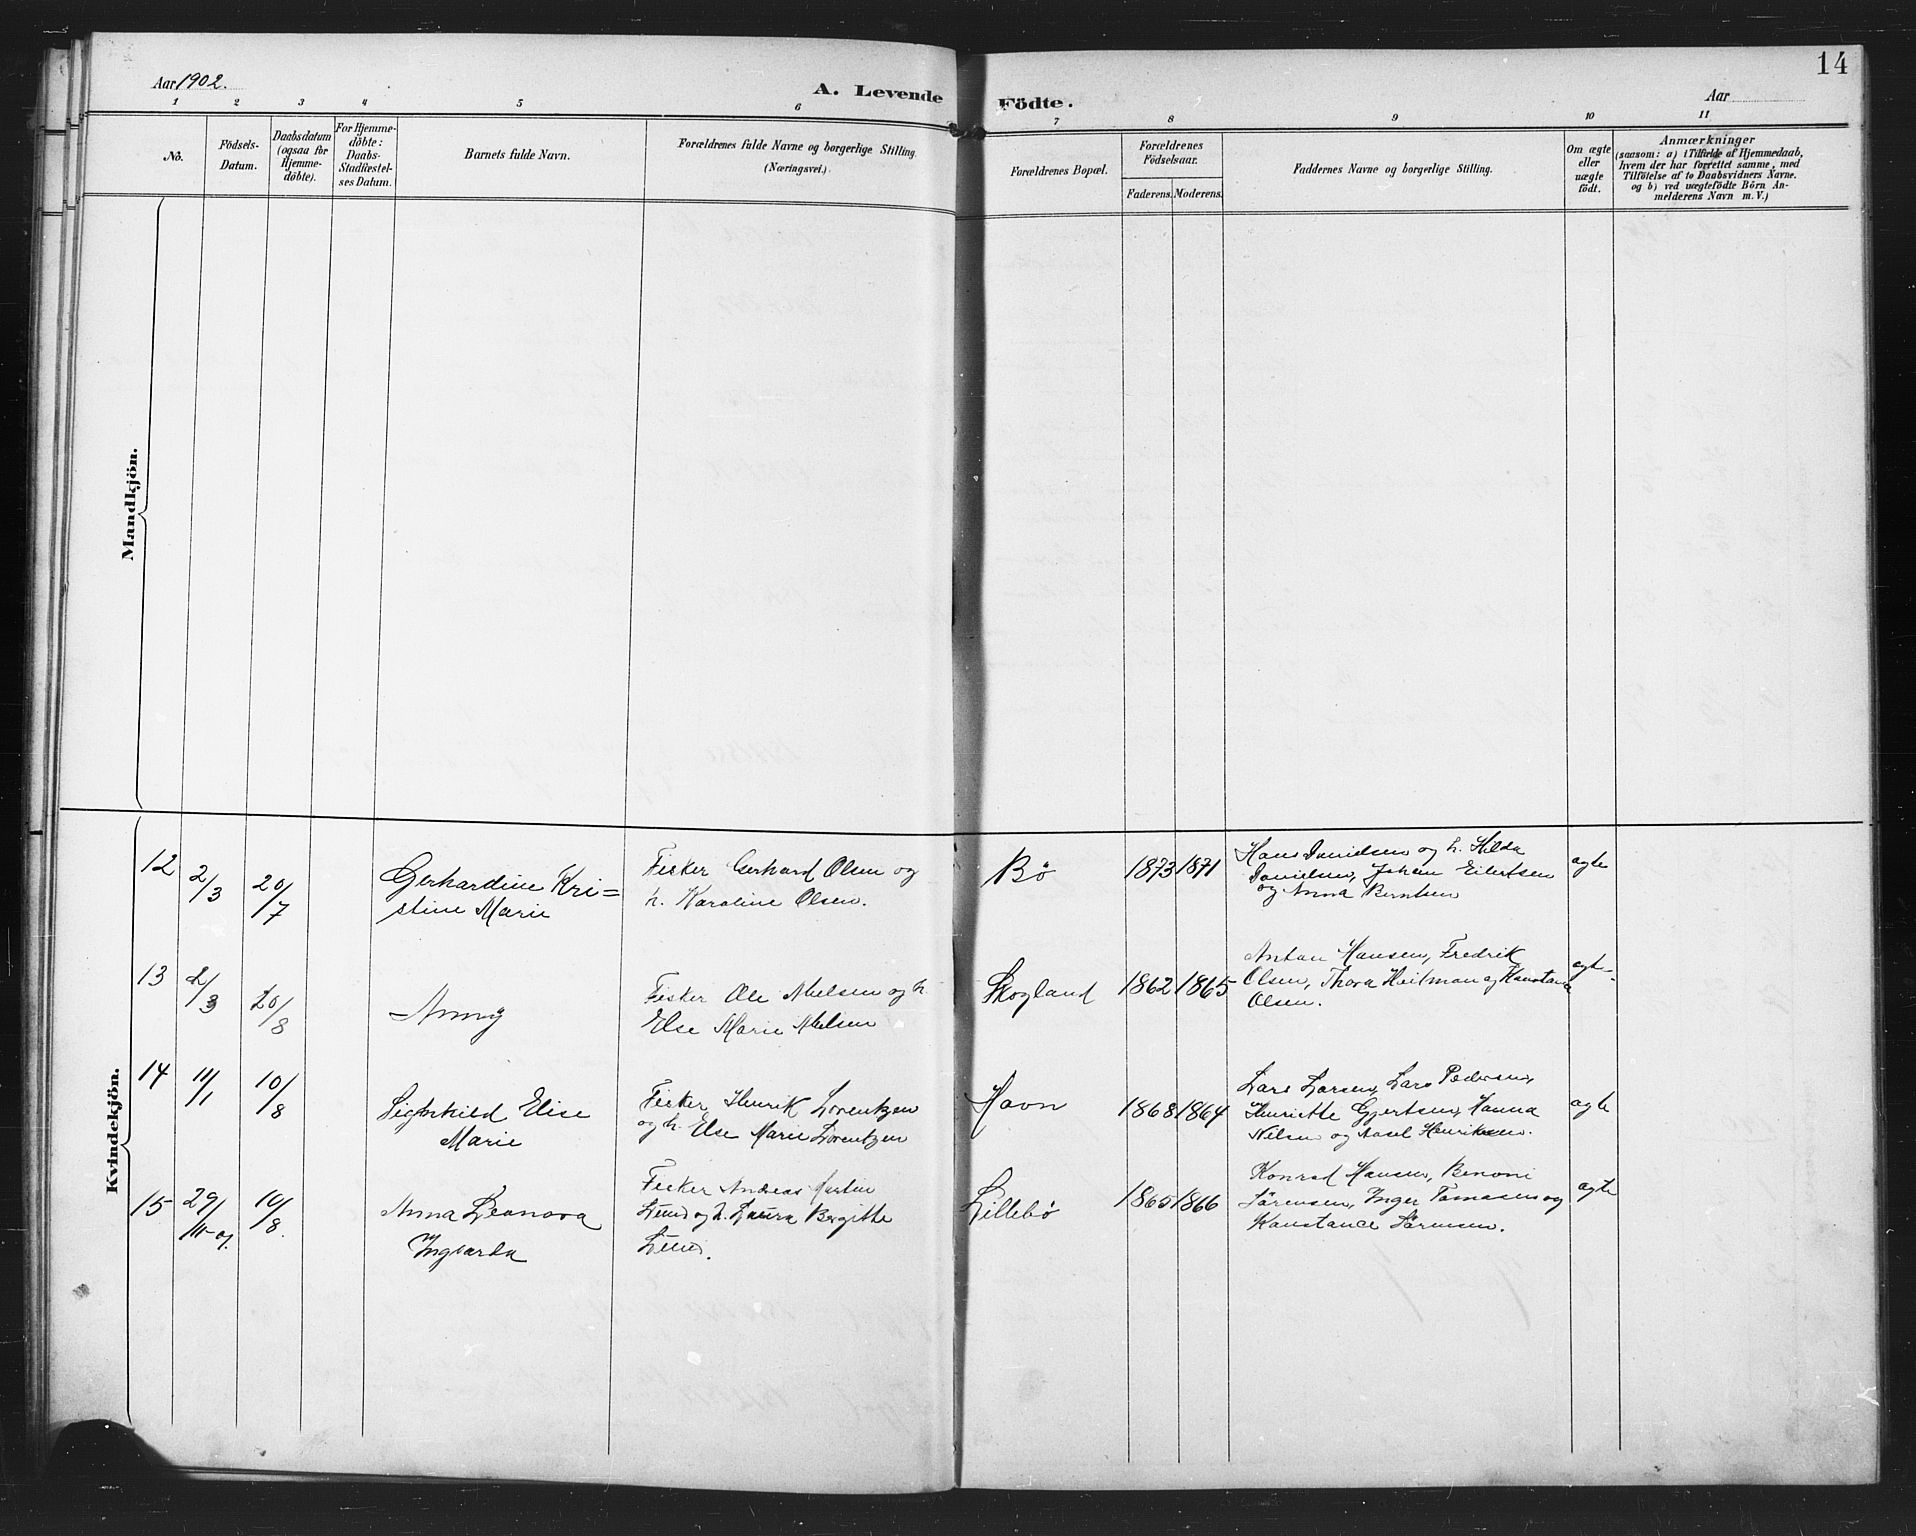 Aar 1902.
A. Levende Födte.
14
Aar
1 2 3 4 5 6 7 8 9 10 11
No.
Födsels-
Datum.
Daabsdatum
(ogsaa for
Hjemme-
döbte).
For Hjemme-
döbte:
Daabs-
Stadfæstel-
ses Datum.
Barnets fulde Navn.
Forældrenes fulde Navne og borgerlige Stilling.
(Næringsvei.)
Forældrenes Bopæl.
Forældrenes
Födselsaar.
Faderens. Moderens.
Faddernes Navne og borgerlige Stilling.
Om ægte
eller
uægte
födt.
Anmærkninger
(saasom: a) i Tilfælde af Hjemmedaab,
hvem der har forrettet samme, med
Tilföielse af to Daabsvidners Navne.
og b) ved uægtefödte Börn An-
melderens Navn m. V.)
Mandkjön.
Kvindekjön.
12
2/3
20/7
Gerhardine Kri=
stine Marie
Fisker Gerhard Olsen og
h. Karoline Olsen.
Bø
1873 1871
Hans Danielsen og h. Hilda
Danielsen, Johan Eilertsen
og Anna Berntsen
ægte
13
2/3
20/8
Anny
Fisker Ole Nielsen og h.
Else Marie Nielsen
Skogland
1862 1865
Anton Hansen, Fredrik
Olsen, Thora Heitman og Konstance
Olsen.
ægte
14
11/1
10/8
Sighild Elise
Marie
Fisker Henrik Lorentzen
og h. Else Marie Lorentzen
Havn
1868 1864
Lars Larsen, Lars Pedersen,
Henriette Gjertsen, Hanna
Nilsen og Aasel Henriksen.
ægte
15
29/11-01.
10/8.
Anna Leonora
Ingvarda
Fisker Andreas Martin
Lund og h. Laura Bergitte
Lund.
Lillebø
1865 1866
Konrad Hansen, Benoni
Sørensen, Inger Tomasen og
Konstance Sørensen.
ægte